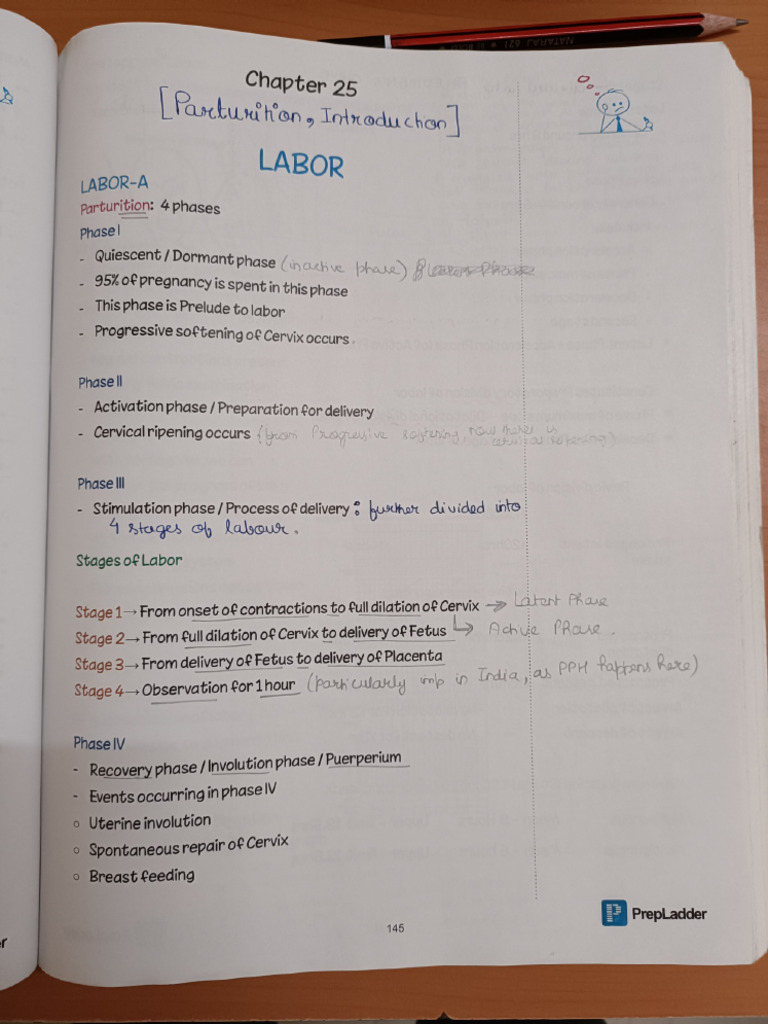 NATARAJ 621
Chapter 25
[Parturition, Introduction]
LABOR
LABOR-A
Parturition: 4 phases
Phase I
- Quiescent / Dormant phase (inactive phase)
- 95% of pregnancy is spent in this phase
- This phase is Prelude to labor
- Progressive softening of Cervix occurs.
Phase II
- Activation phase / Preparation for delivery
- Cervical ripening occurs (from Progressive softening, now there is
Phase III
- Stimulation phase / Process of delivery : further divided into
4 stages of labour.
Stages of Labor
Stage 1 → From onset of contractions to full dilation of Cervix → Latent Phase
Stage 2 → From full dilation of Cervix to delivery of Fetus ↳ Active Phase.
Stage 3 → From delivery of Fetus to delivery of Placenta
Stage 4 → Observation for 1 hour (particularly imp in India, as PPH happens here)
Phase IV
- Recovery phase / Involution phase / Puerperium
- Events occurring in phase IV
o Uterine involution
o Spontaneous repair of Cervix
o Breast feeding
PrepLadder
145